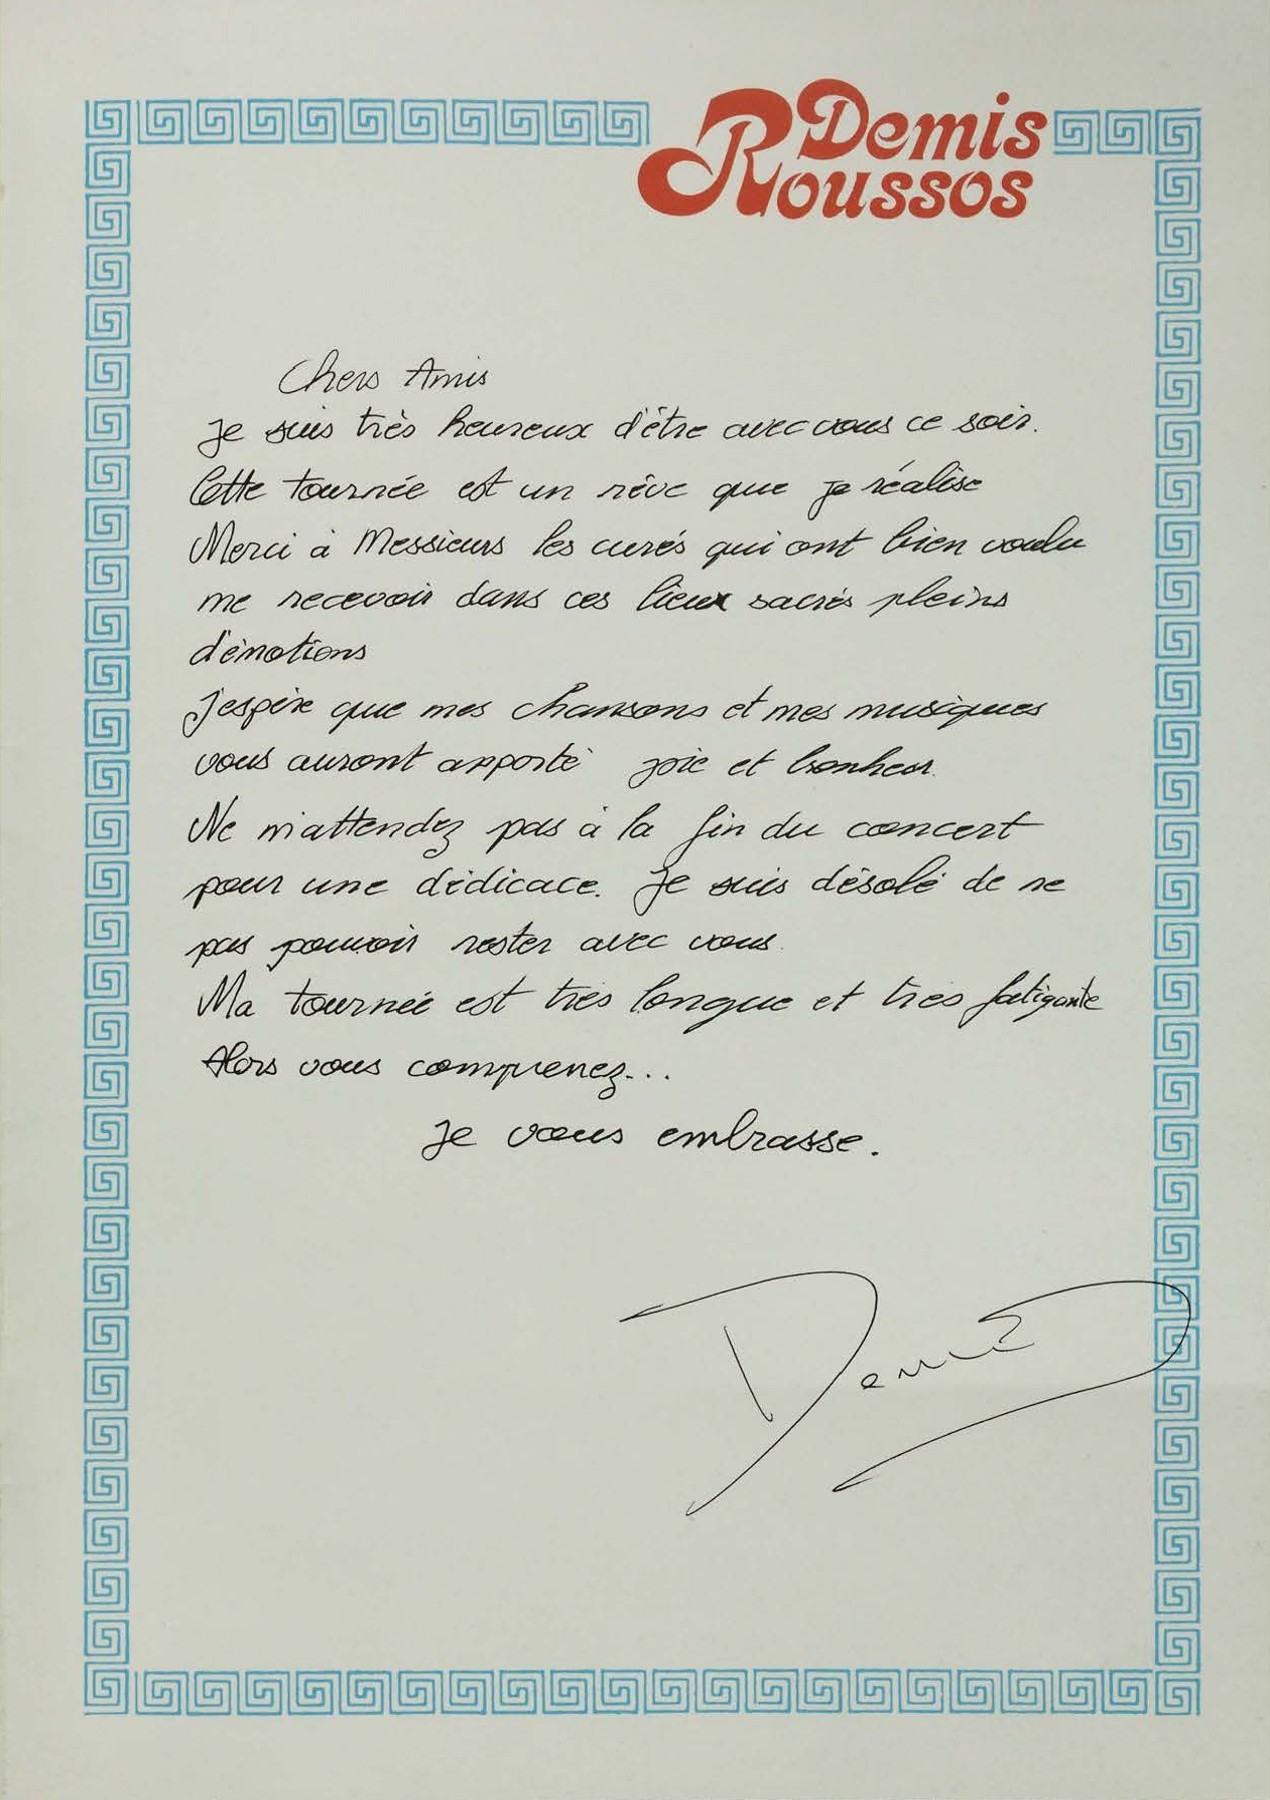 Demis
Roussos
Chers Amis
Je suis très heureux d'être avec vous ce soir.
Cette tournée est un rêve que je réalise
Merci à Messieurs les curés qui ont bien voulu
me recevoir dans ces lieux sacrés pleins
d'émotions
J'espère que mes chansons et mes musiques
vous auront apporté joie et bonheur.
Ne m'attendez pas à la fin du concert
pour une dédicace. Je suis désolé de ne
pas pouvoir rester avec vous.
Ma tournée est très longue et très fatigante
Alors vous comprenez...
Je vous embrasse.
Demis